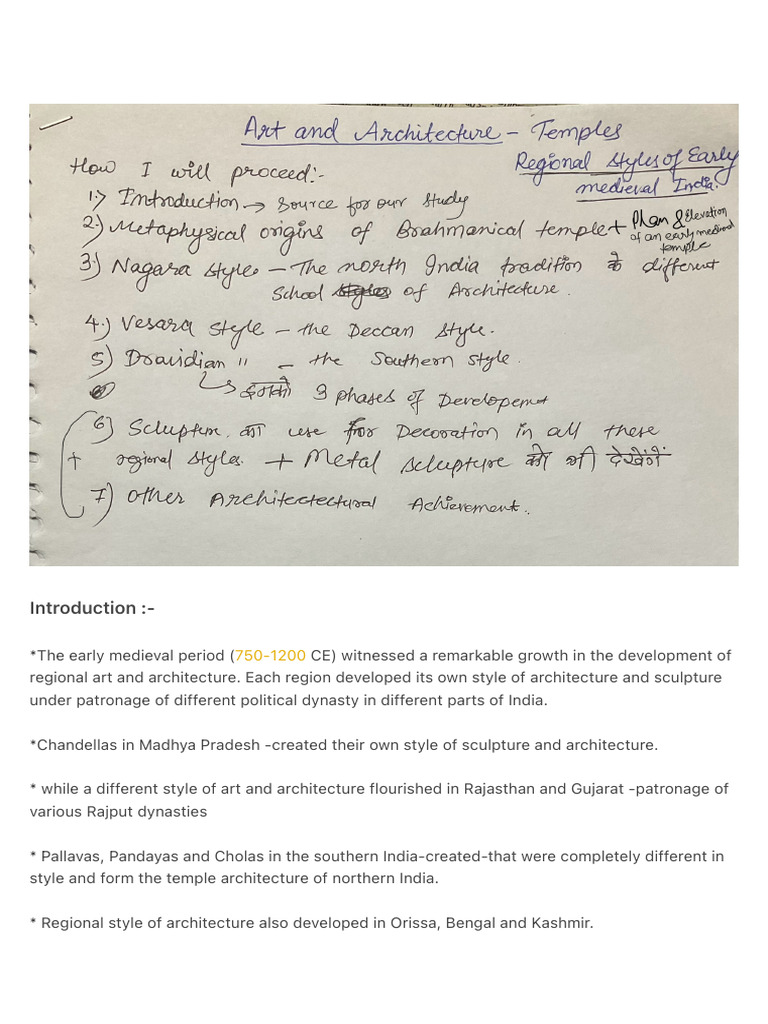 Art and Architecture - Temples
Regional Styles of Early
medieval India.
How I will proceed:-
1.) Introduction → Source for our Study
2.) Metaphysical origins of Brahmanical temple + Phan & Elevation
of an early medieval
temple
3.) Nagara style - The north India tradition के different
School styles of Architecture.
4.) Vesara style - the Deccan style.
5) Dravidian " - the Southern style.
↳ इसको 3 phases of Developemet
6) Sclupture का use for Decoration in all these
+ regional styles. + Metal sclupture को भी देखेंगें
7) Other Architectectural Achievement.
Introduction :-
*The early medieval period (750-1200 CE) witnessed a remarkable growth in the development of
regional art and architecture. Each region developed its own style of architecture and sculpture
under patronage of different political dynasty in different parts of India.
*Chandellas in Madhya Pradesh -created their own style of sculpture and architecture.
* while a different style of art and architecture flourished in Rajasthan and Gujarat -patronage of
various Rajput dynasties
* Pallavas, Pandayas and Cholas in the southern India-created-that were completely different in
style and form the temple architecture of northern India.
* Regional style of architecture also developed in Orissa, Bengal and Kashmir.